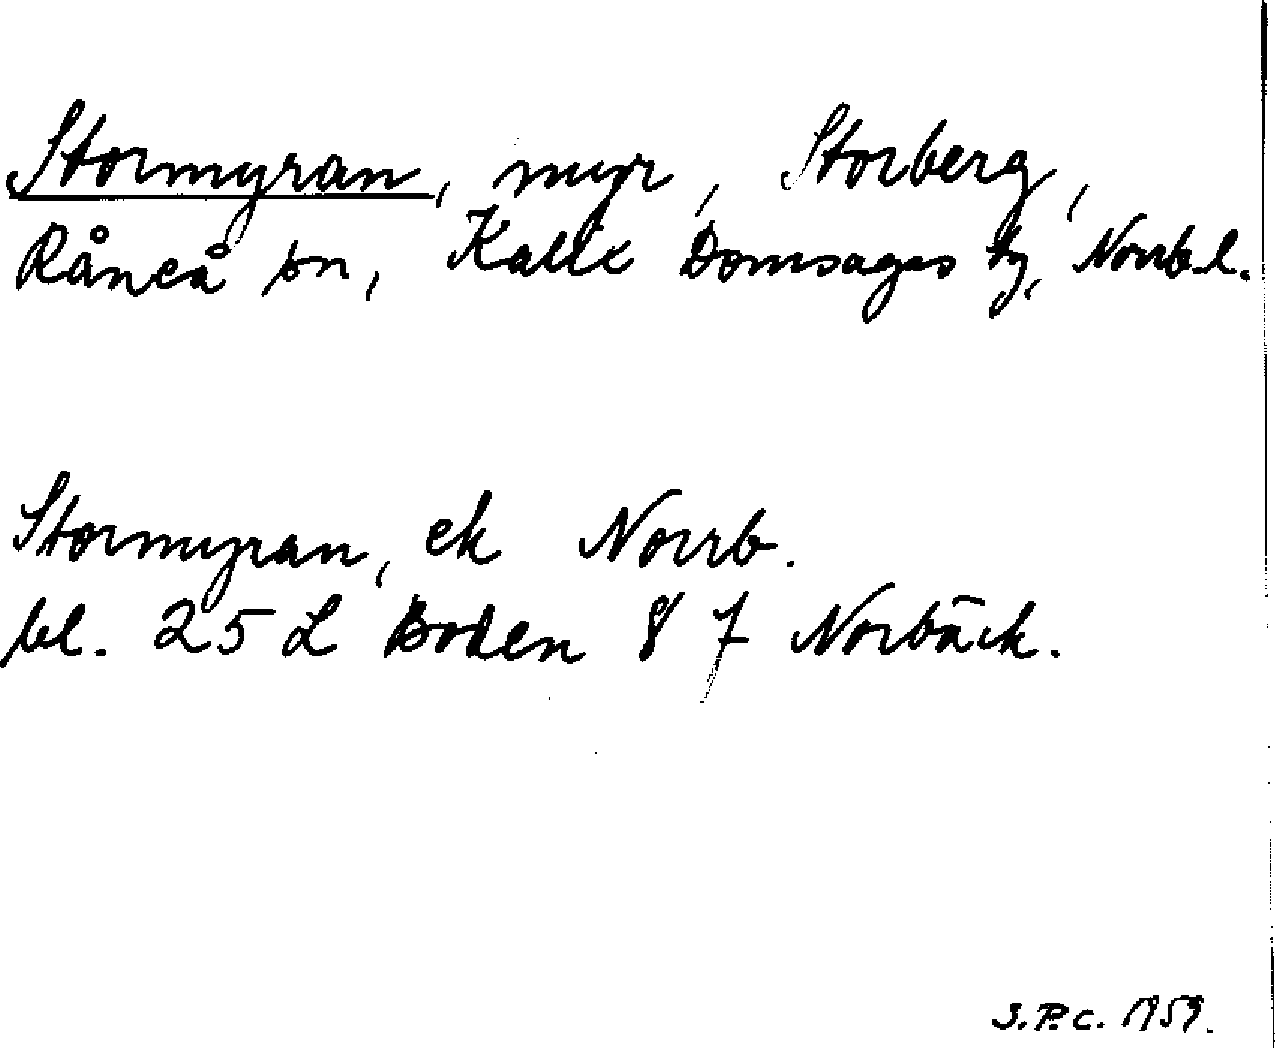 Stormyran, myr, Storberg,
Råneå sn, Kalix Domsagas tg, Norrb.l.
Stormyran, ek Norrb.
bl. 25 L Boden 8 f Norbäck.
S.P.C. 1959.